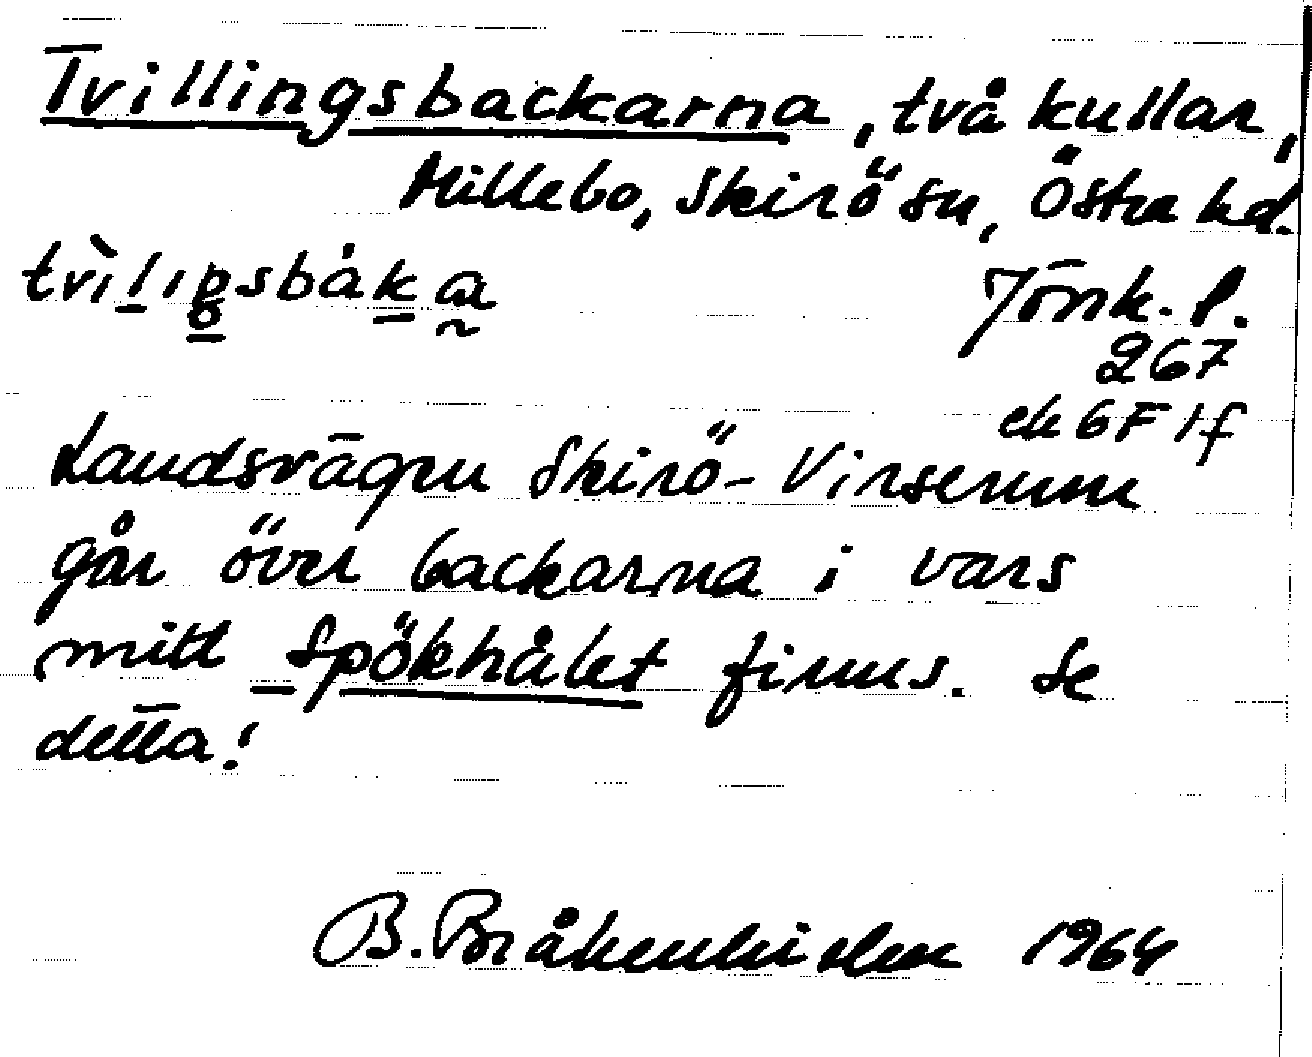 Tvillingsbackarna, två kullar,
Millebo, Skirö sn, Östra hd.
Jönk. l.
267
ek 6F 1f
Landsvägen Skirö-Virserum
går över backarna i vars
mitt Spökhålet finns. Se
detta!
B. 1964